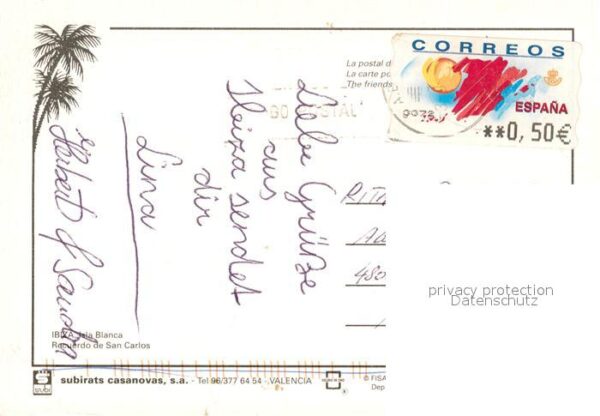 CORREOS
ESPAÑA
**0,50€
La postal d
La carte po
The friends
Liebe Grüße
aus
Ibiza sendet
dir
Lina
Herbert & Sandra
RIT
480
privacy protection
Datenschutz
IBIZA. Isla Blanca
Recuerdo de San Carlos
subirats casanovas, s.a. - Tel 96/377 64 54 - VALENCIA
© FISA
Dep